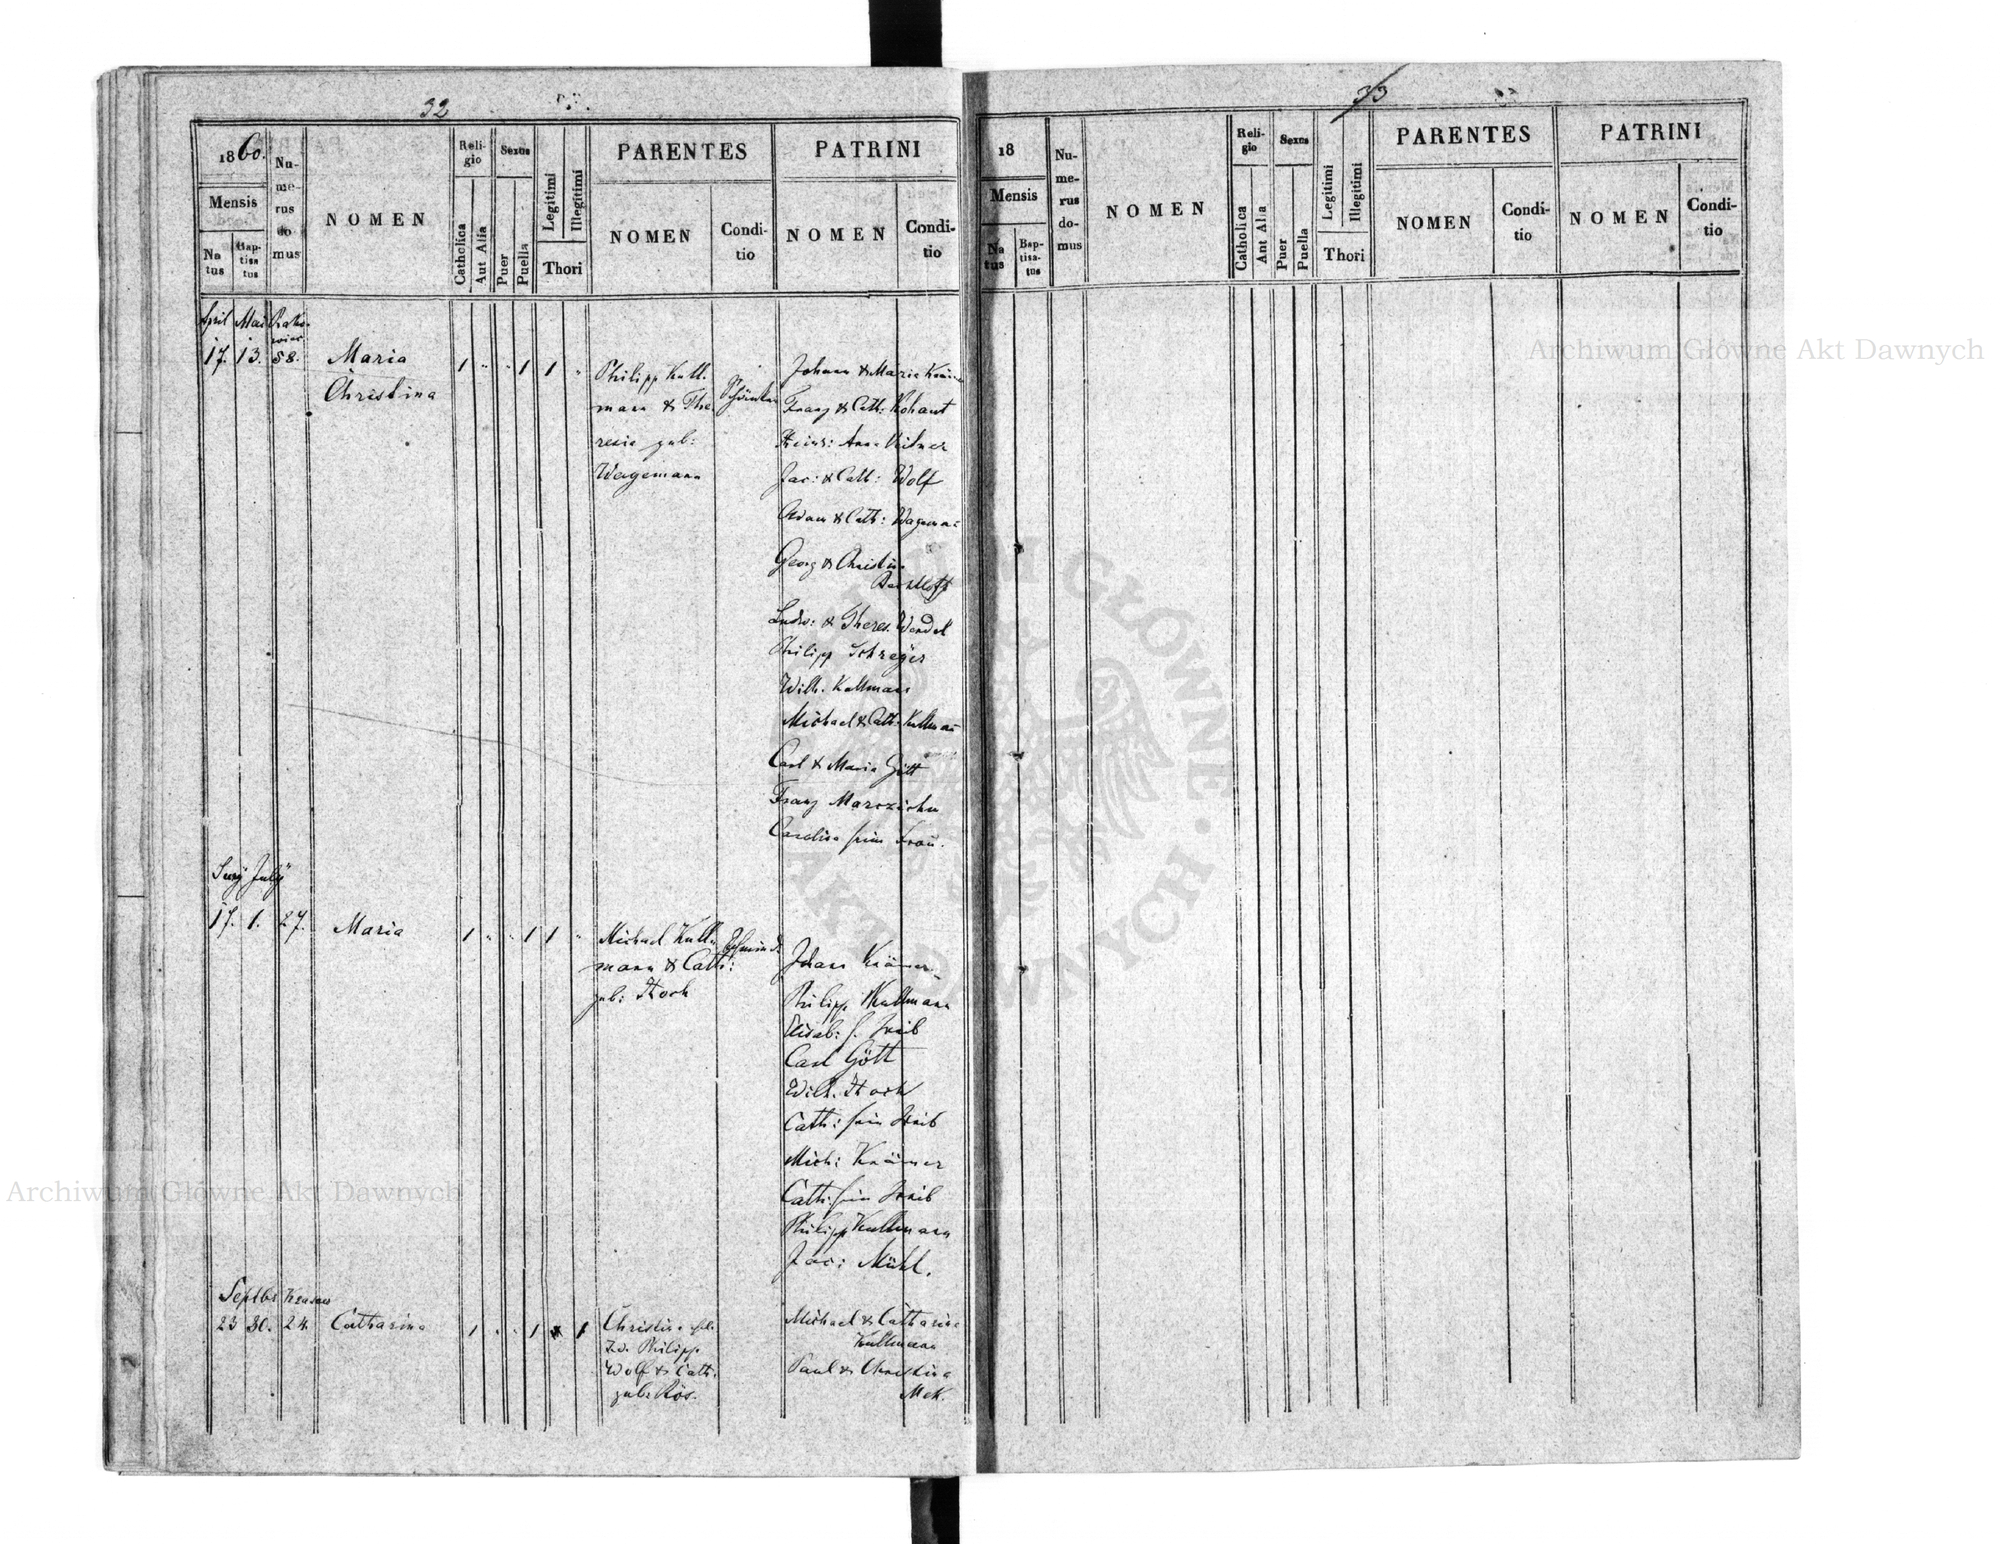 32
1860.
Mensis
Na
tus
Bap-
tisa
tus
Nu-
me-
rus
do
mus
NOMEN
Reli-
gio
Catholica
Aut Alia
Sexus
Puer
Puella
Legitimi
Illegitimi
Thori
PARENTES
NOMEN
Condi-
tio
PATRINI
NOMEN
Condi-
tio
April Mai
17. 13. 58.
Maria
Christina
1 " " 1 1 "
Philipp Kull-
mann & The-
resia geb:
Wagemann
Johann & Maria
Franz & Cath: Kohaut
Anna
Jac: & Cath: Wolf
Adam & Cath:
Georg & Christina
Ludw: & Theres. Wendel
Philipp Schreyer
Wilh. Kullmann
Michael & Cath. Kullman
Carl & Maria Gött
Franz
Carolina sein Frau.
Juny July
17. 1. 27.
Maria
1 " " 1 1 "
Michael Kull-
mann & Cath:
geb: Stork
Johann Krämer
Philipp Kullmann
Elisab: s. Weib
Carl Gött
Wilh. Stork
Cath: sein Weib
Mich: Krämer
Cath: sein Weib
Philipp Kullmann
Jac: Mühl.
Septbr
23 30. 24.
Catharina
1 " " 1 1
Christina
Philipp
Wolf & Cath.
geb: Rös.
Michael & Catharina
Kullmann
Paul & Christina
Mek.
33
18
Mensis
Na
tus
Bap-
tisa-
tus
Nu-
me-
rus
do-
mus
NOMEN
Reli-
gio
Catholica
Aut Alia
Sexus
Puer
Puella
Legitimi
Illegitimi
Thori
PARENTES
NOMEN
Condi-
tio
PATRINI
NOMEN
Condi-
tio
Archiwum Główne Akt Dawnych
Archiwum Główne Akt Dawnych
ARCHIWUM GŁÓWNE AKT DAWNYCH